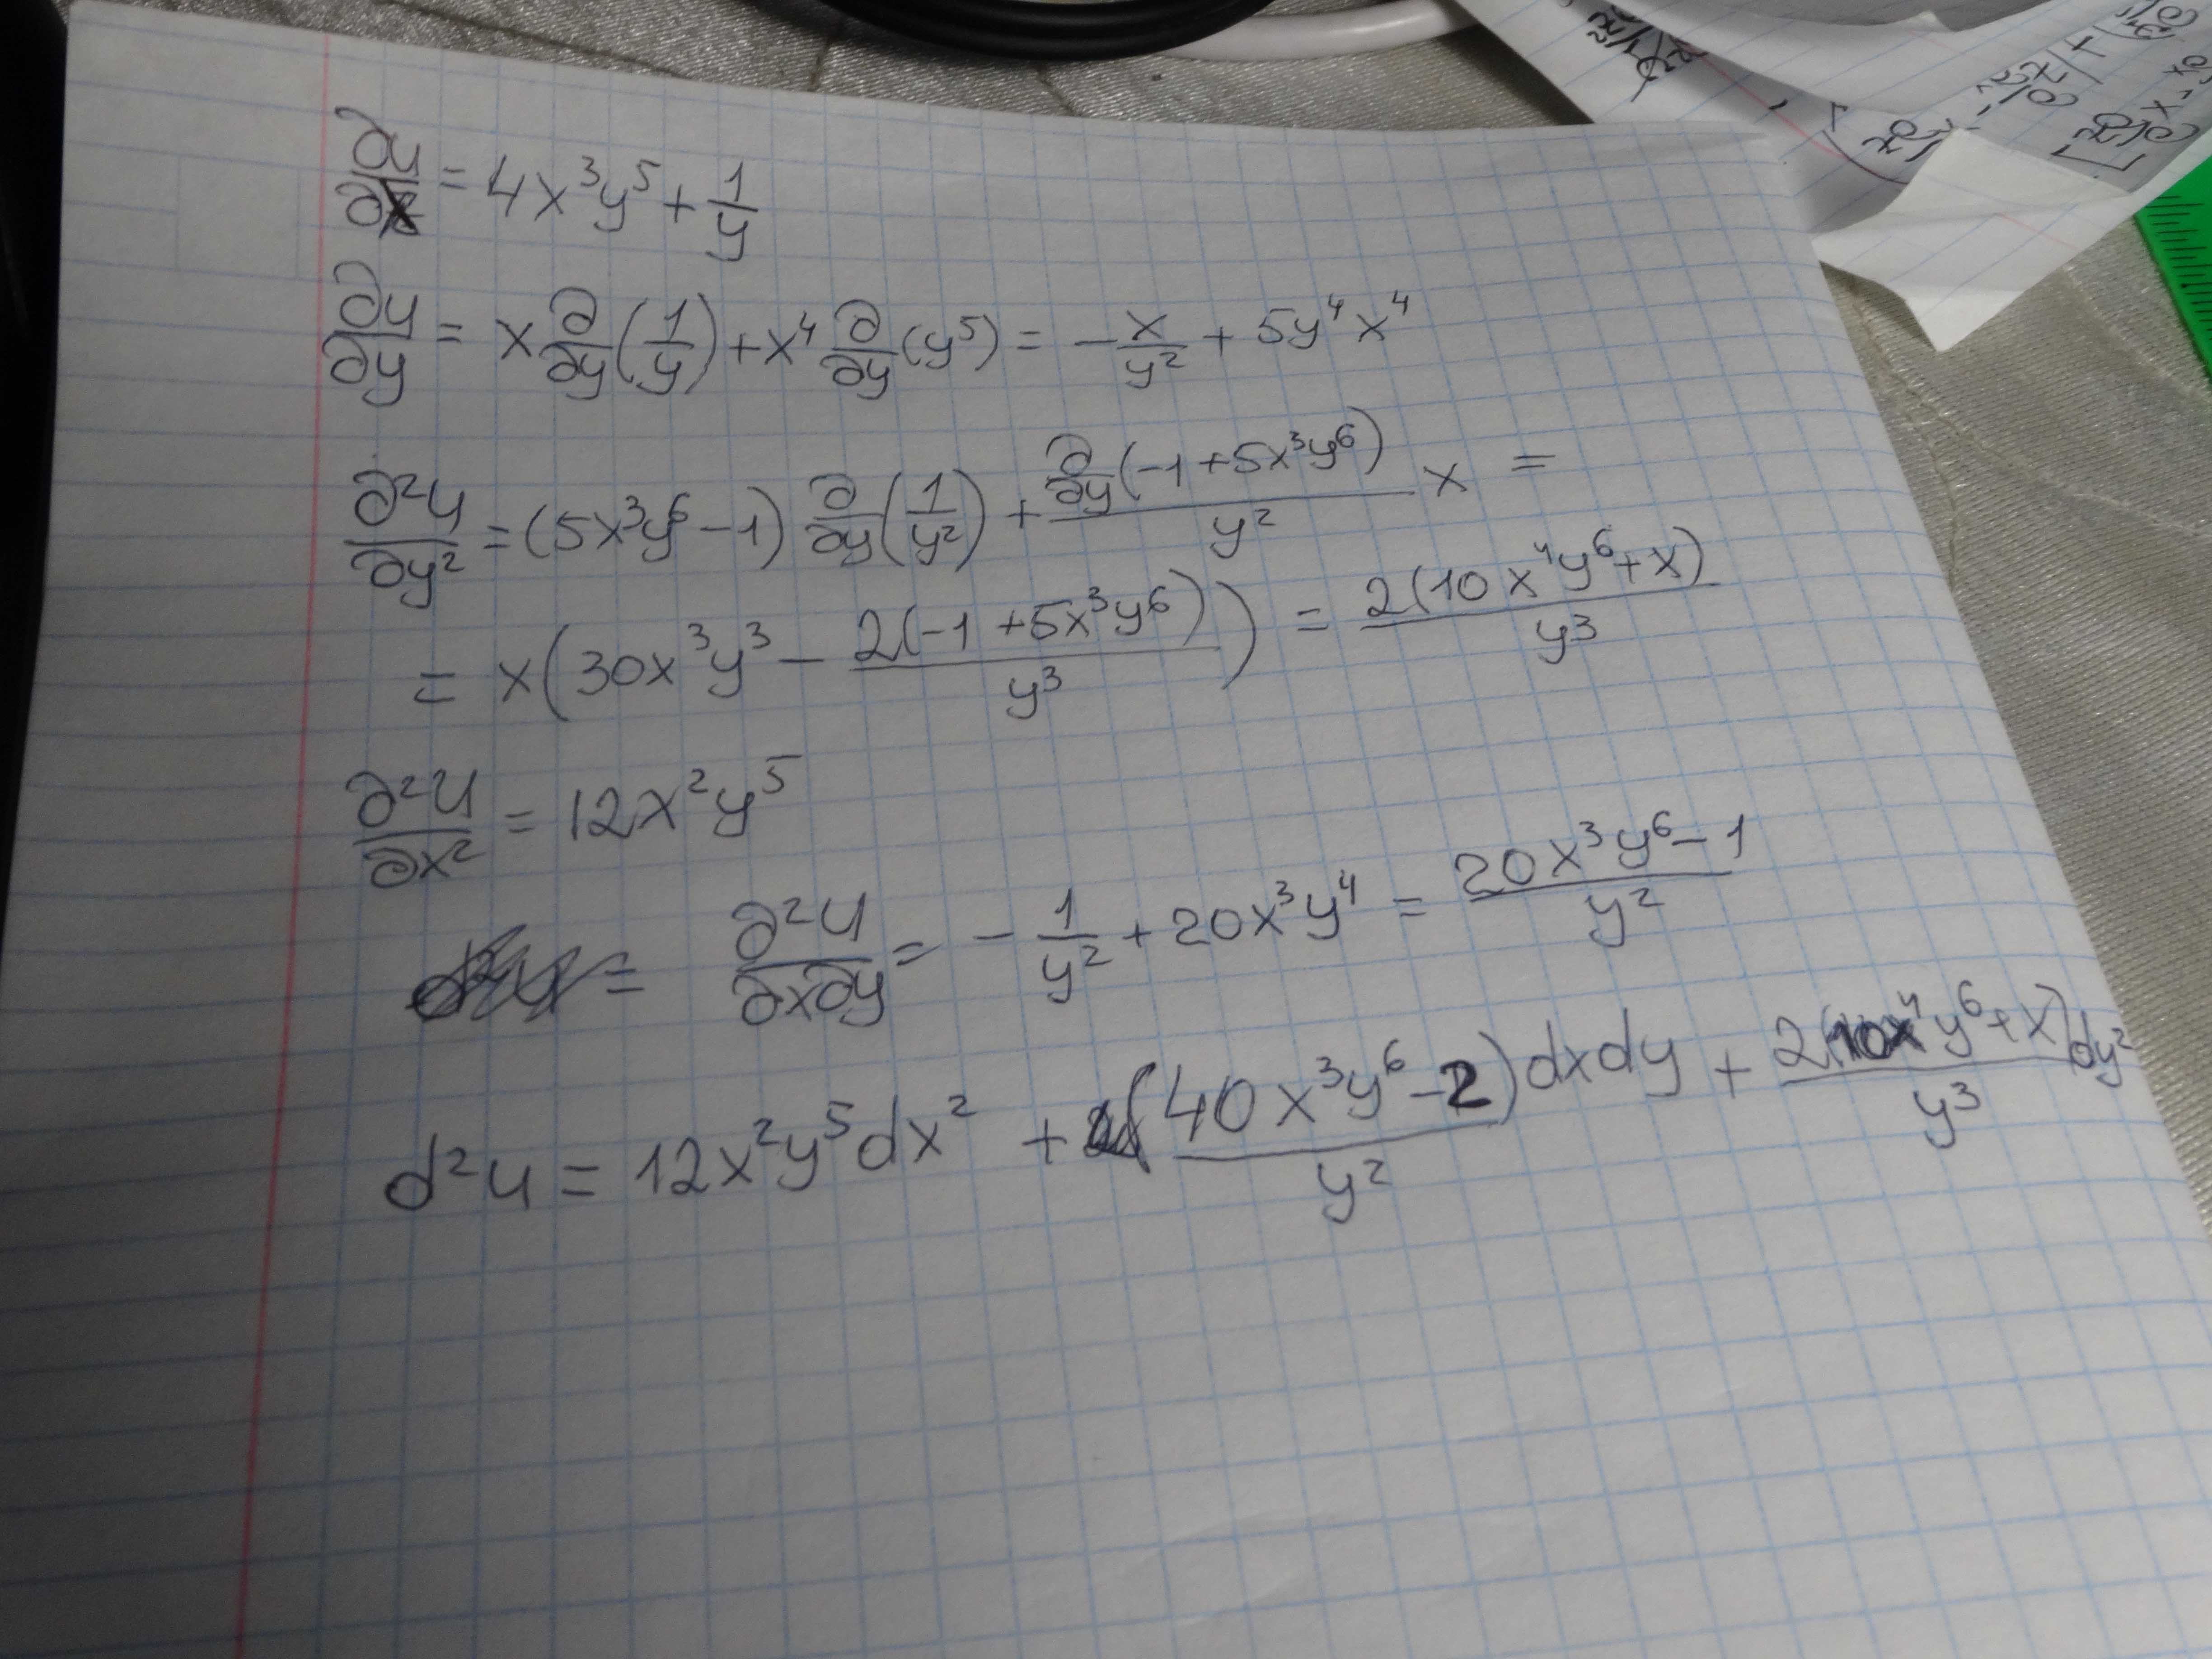 ∂u/∂x = 4x³y⁵ + 1/y
∂u/∂y = x ∂/∂y (1/y) + x⁴ ∂/∂y (y⁵) = - x/y² + 5y⁴x⁴
∂²u/∂y² = (5x³y⁶ - 1) ∂/∂y (1/y²) + ∂/∂y (-1 + 5x³y⁶)/y² x =
= x (30x³y³ - 2(-1 + 5x³y⁶)/y³) = 2(10x⁴y⁶ + x)/y³
∂²u/∂x² = 12x²y⁵
= ∂²u/∂x∂y = - 1/y² + 20x³y⁴ = (20x³y⁶ - 1)/y²
d²u = 12x²y⁵dx² + (40x³y⁶ - 2)/y² dxdy + 2(10x⁴y⁶ + x)/y³ dy²